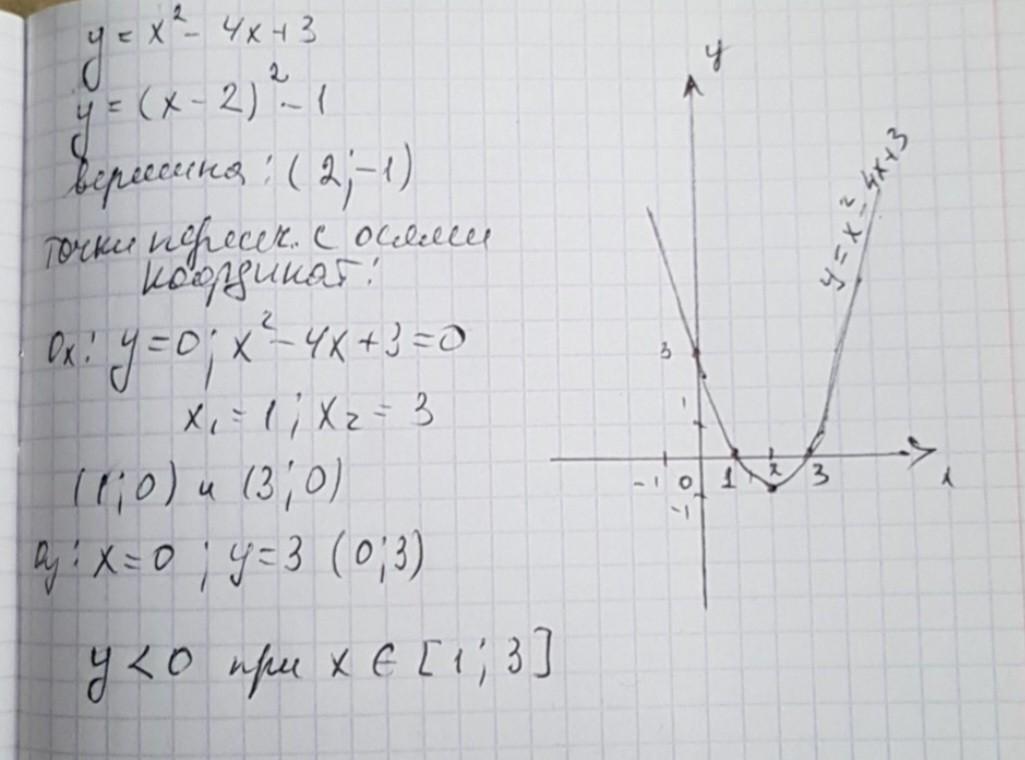 y = x² - 4x + 3
y = (x - 2)² - 1
вершина : (2; -1)
точки пересек. с осями
координат :
Ox : y = 0; x² - 4x + 3 = 0
x₁ = 1 ; x₂ = 3
(1; 0) и (3; 0)
Oy : x = 0 ; y = 3 (0; 3)
y < 0 при x ∈ [1; 3]
y
y = x² - 4x + 3
3
1
-1 0 1 2 3
-1
x